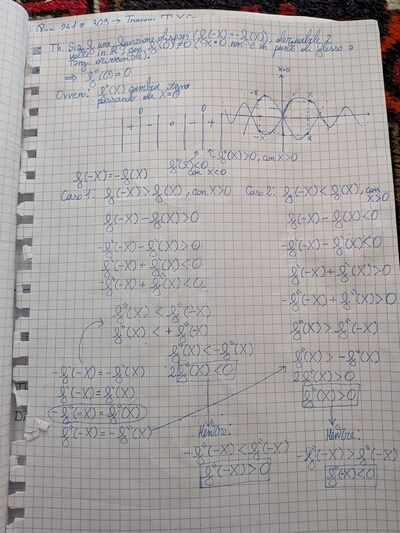 Th. Sia f una funzione dispari (f(-X) = -f(X)), derivabile 2
volte in R, con f'(0)≠0 (X=0 non è un punto di flesso a
tang. orizzontale).
⇒ f''(0)=0
Ovvero: f''(X) cambia segno
passando da X=0
X=0
-X X
-X X
+ - 0 - +
f''(X)>0, con X>0
f''(X)<0
con X<0
f(-X)=-f(X)
Caso 1: f(-X)>f(X), con X>0
f(-X)-f(X)>0
-f'(-X)-f'(X)>0
f'(-X)+f'(X)<0
-f''(-X)+f''(X)<0
f''(X)<f''(-X)
f''(X)<+f''(-X)
f''(X)<-f''(X)
2f''(X)<0
-f'(-X)=-f'(X)
f'(-X)=f'(X)
-f''(-X)=f''(X)
f''(-X)=-f''(X)
Mentre:
-f''(-X)<f''(-X)
f''(-X)>0
Caso 2: f(-X)<f(X), con
X>0
f(-X)-f(X)<0
-f'(-X)-f'(X)<0
f'(-X)+f'(X)>0
-f''(-X)+f''(X)>0
f''(X)>f''(-X)
f''(X)>-f''(X)
2f''(X)>0
f''(X)>0
Mentre:
-f''(-X)>f''(-X)
f''(-X)<0